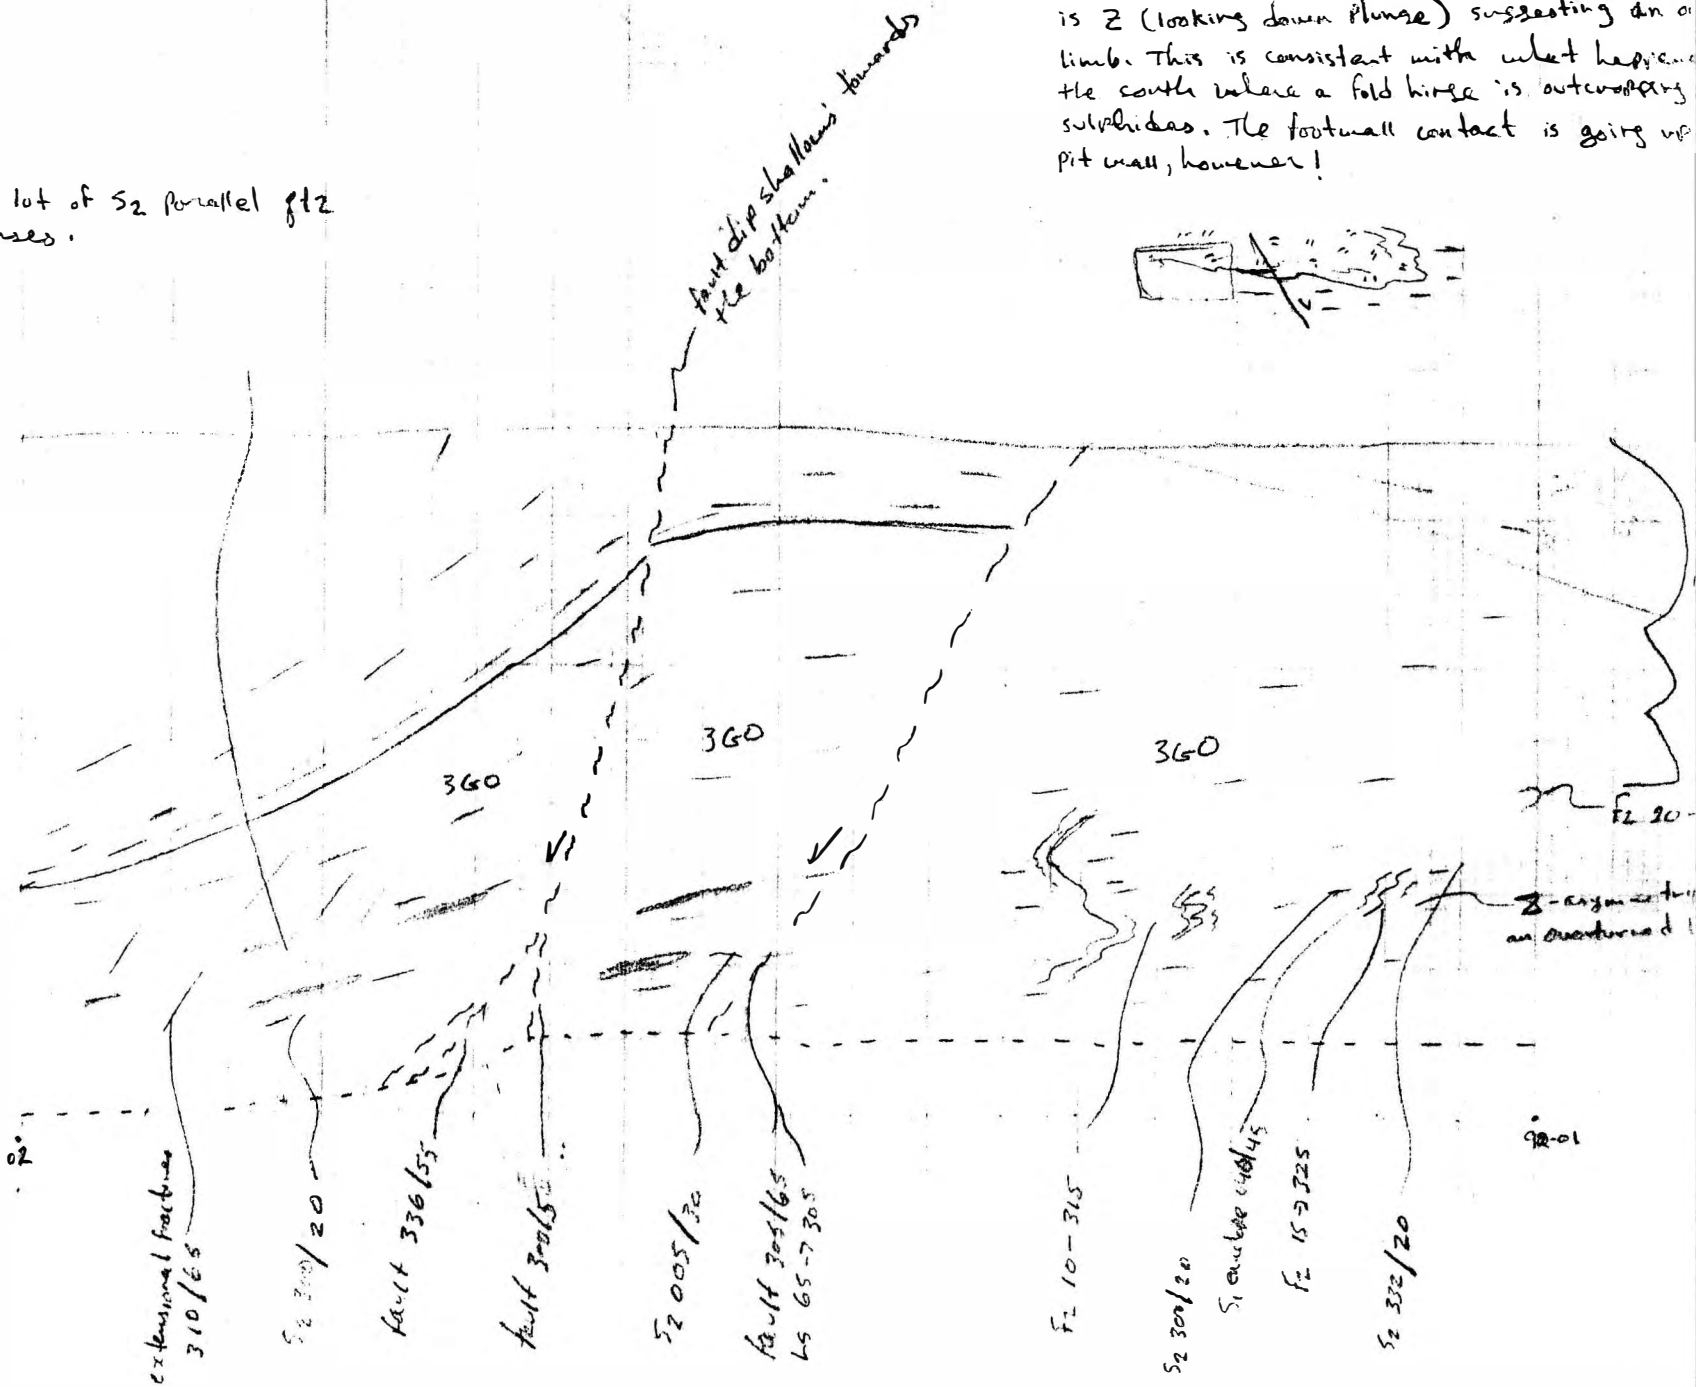 is Z (looking down plunge) suggesting an o
limb. This is consistent with what happens
the south where a fold hinge is outcropping
sulphides. The footwall contact is going up
pit wall, however!
lot of S2 parallel qtz
nses.
fault dip shallows towards
the bottom.
3GO
3GO
3GO
F2 20-
Z-asymmetri
an overturned l
02
92-01
extensional fractures
310/65
S2 300/20
fault 336/55
fault 300/5
S2 005/30
fault 305/65
LS 65->305
F2 10-315
S2 300/20
S1
F2 15->325
S2 332/20